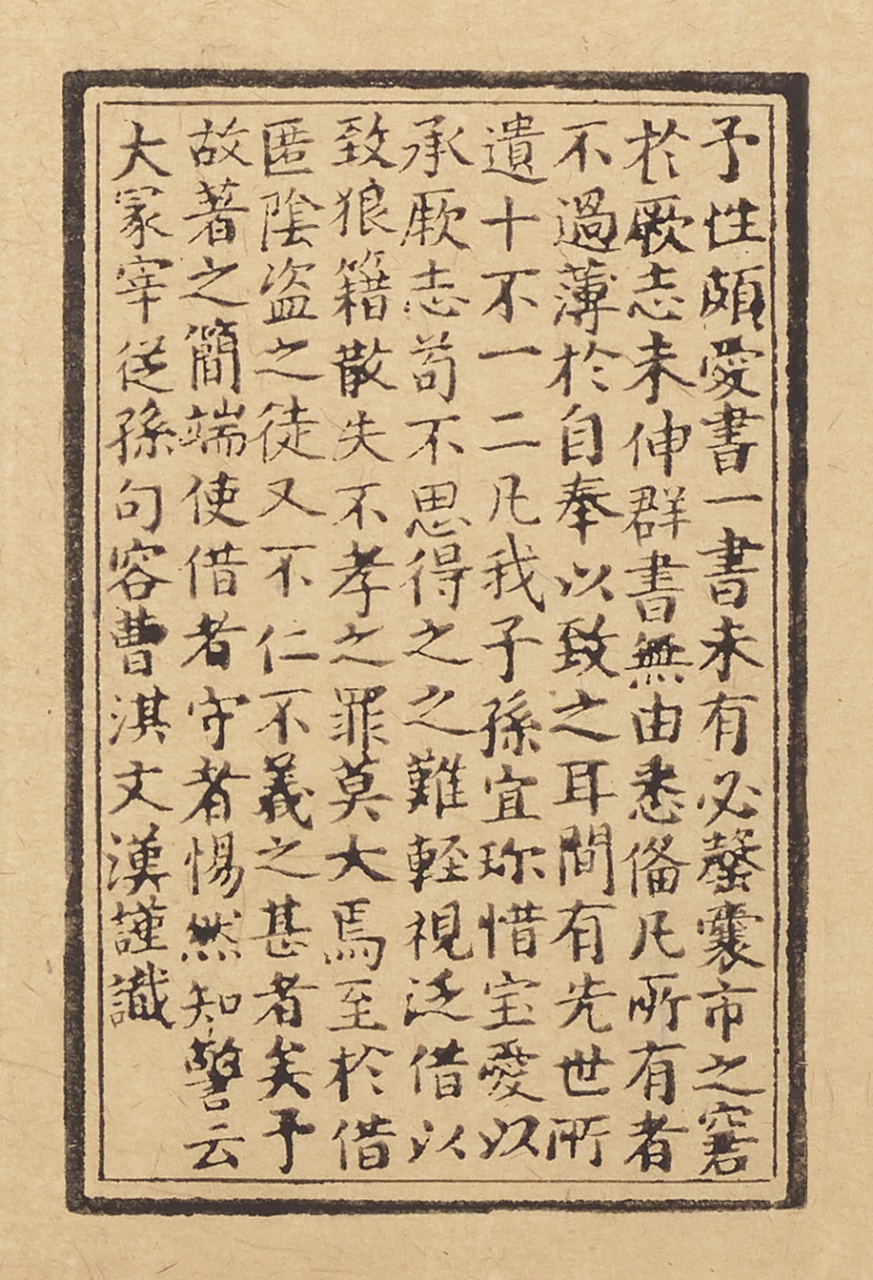 予性頗愛書一書未有必罄囊市之窘
於厥志未伸群書無由悉俻凡所有者
不過薄於自奉以致之耳間有先世所
遺十不一二凡我子孫宜珎惜宝愛以
承厥志苟不思得之之難輕視泛借以
致狼籍散失不孝之罪莫大焉至於借
匿陰盜之徒又不仁不義之甚者矣予
故著之簡端使借者守者惕然知警云
大冡宰從孫句容曹淇文漢謹識